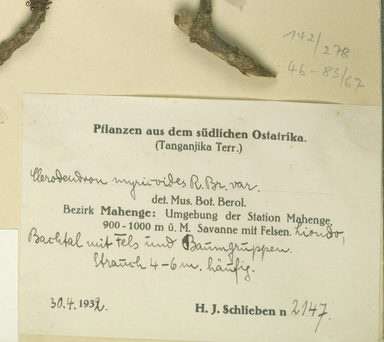 142/278
46-83/67
Pflanzen aus dem südlichen Ostafrika.
(Tanganjika Terr.)
Clerodendron myricoides R. Br. var.
det. Mus. Bot. Berol.
Bezirk Mahenge: Umgebung der Station Mahenge,
900 - 1000 m ü. M. Savanne mit Felsen. Liondo,
Bachtal mit Fels und Baumgruppen.
Strauch 4-6 m. häufig.
30.4.1932. H. J. Schlieben n 2147.